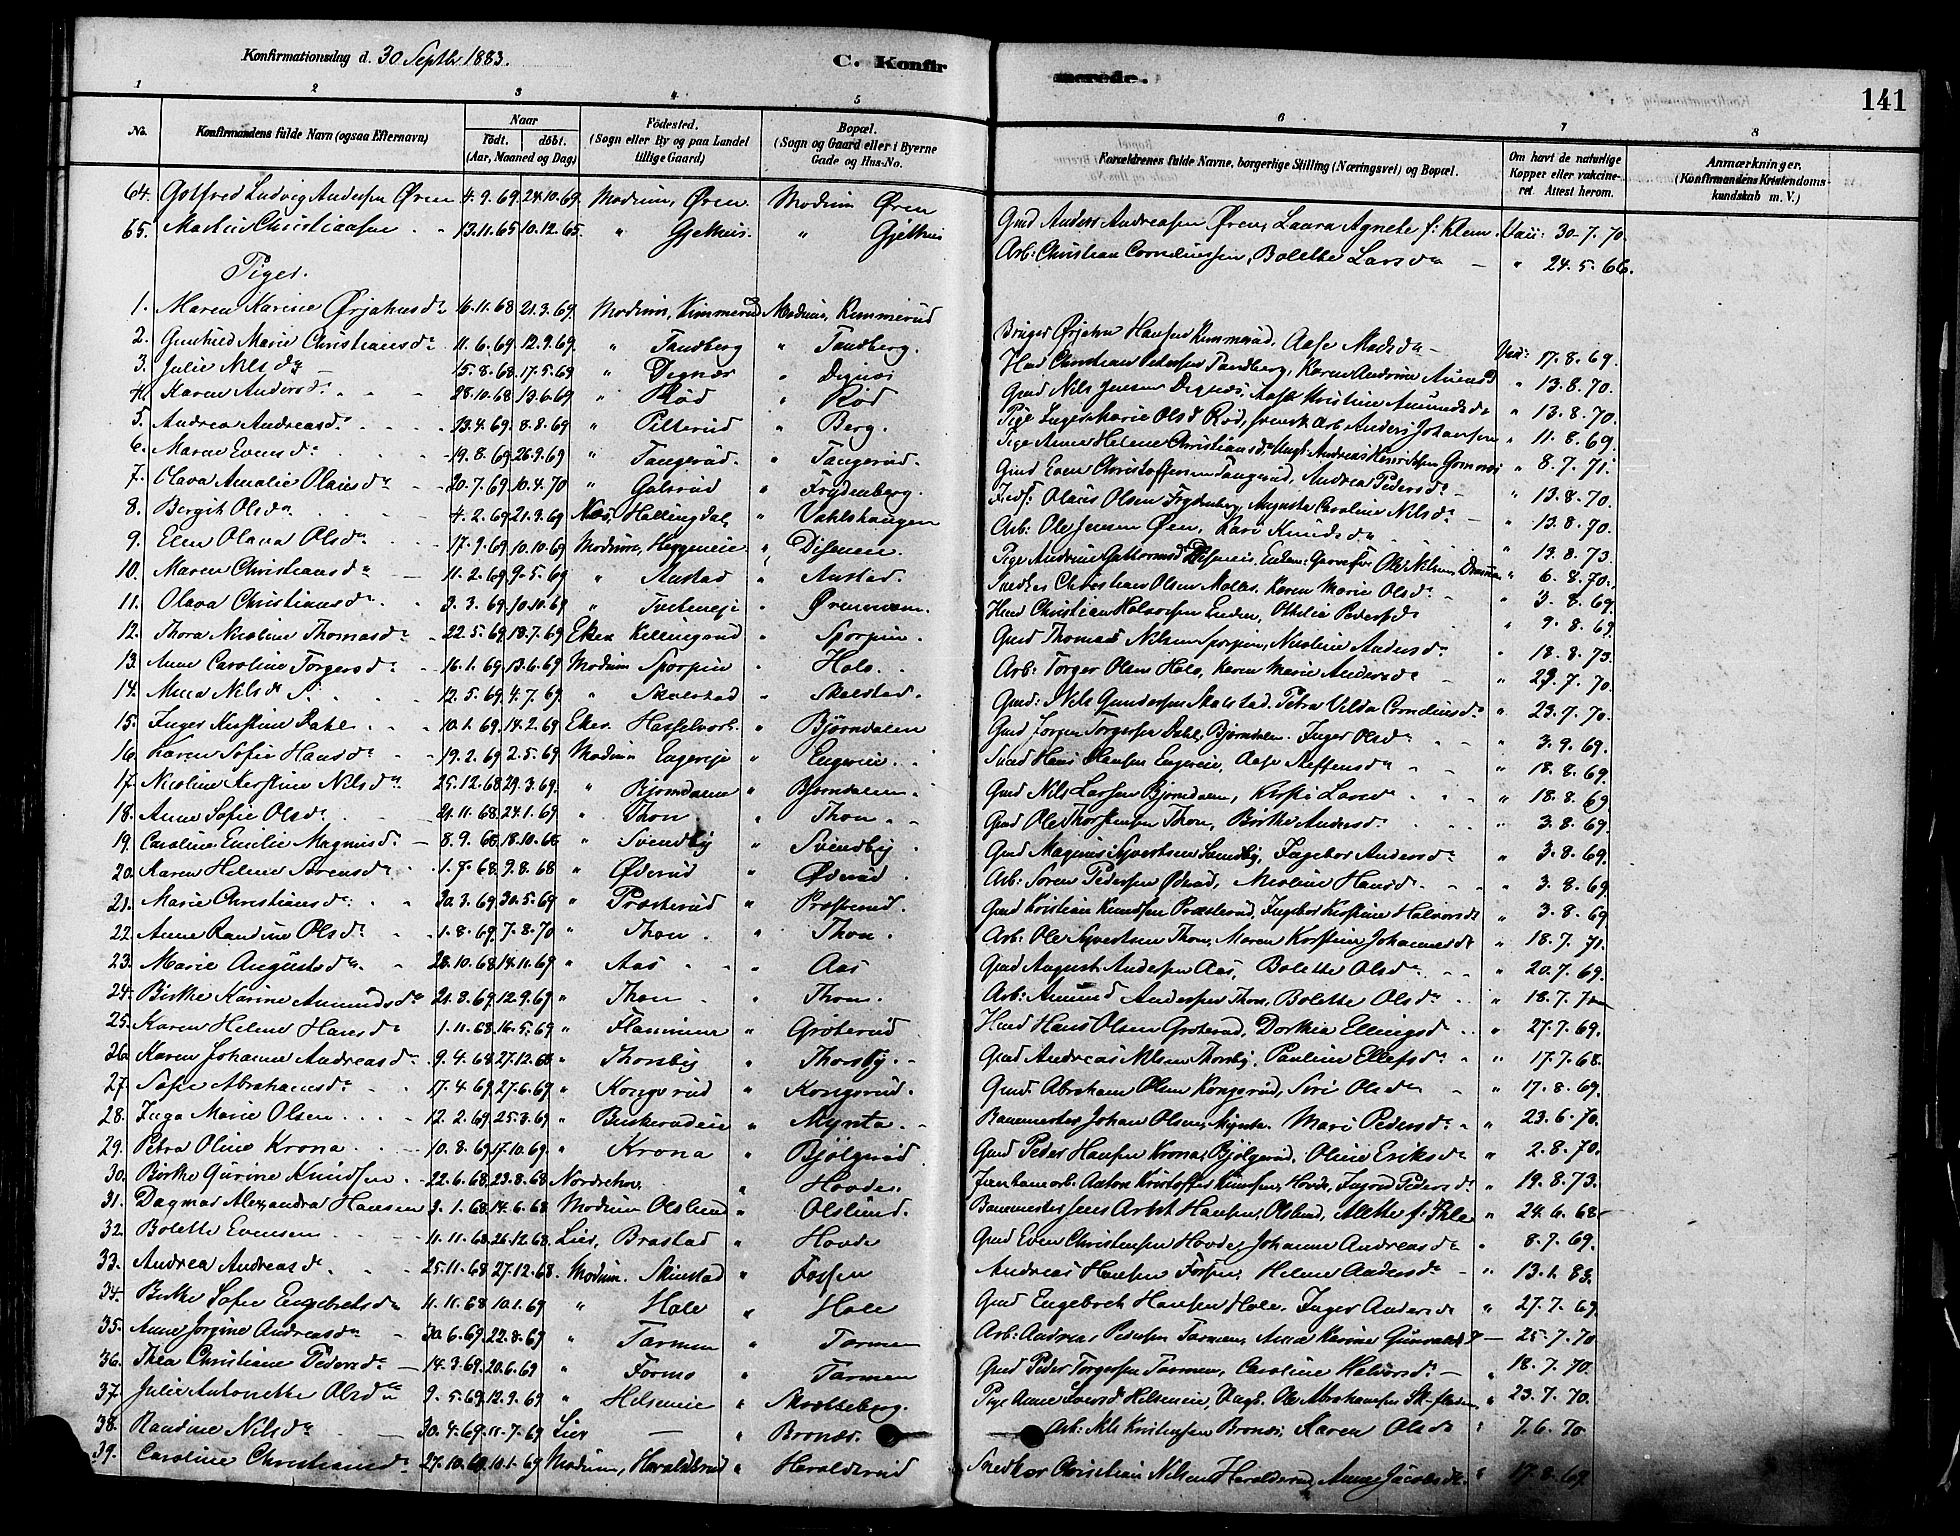 Konfirmationsdag d. 30 Septb 1883.
C. Konfirmerede.
141
1 2 3 4 5 6 7 8
No.
Konfirmandens fulde Navn (ogsaa Efternavn)
Naar
født. døbt.
(Aar, Maaned og Dag)
Fødested.
(Sogn eller By og paa Landet
tillige Gaard)
Bopæl.
(Sogn og Gaard eller i Byerne
Gade og Hus-No.
Forældrenes fulde Navne, borgerlige Stilling (Næringsvei) og Bopæl.
Om havt de naturlige
Kopper eller vakcine-
ret. Attest herom.
Anmærkninger.
(Konfirmandens Kristendoms-
kundskab m. V.)
64. Gotfred Ludvig Andersen Øren 4.9.69 24.10.69. Modum, Øren Modum Øren Gmd Anders Andreassen Øren, Laura Agnete f: Klem Vacc: 30.7.70.
65. Martin Christiansen 13.11.65 10.12.65. " Gjethus. " Gjethus Arb: Christian Corneliussen, Bolette Larsdr " 24.5.66.
Piger.
1. Maren Karine Ørjansdr 16.11.68 21.3.69. Modum, Kimmerud Modum, Kimmerud Bruger Ørjahn Hansen Kimmerud, Aase Madsdr Vacc: 17.8.69.
2. Gunhild Marie Christiansdr 11.6.69 12.9.69. " Tandberg " Tandberg. Christian Petersen Tandberg, Karen Andrine " 13.8.70.
3. Julie Nilsdr 15.8.68 17.5.69 " Degnæs " Degnæs Gmd Nils Jensen Degnæs, Kristine Amundsdr " 13.8.70.
4. Karen Andersdr 28.10.68 13.6.69 " Rød " Rød Pige Inger Marie Olsd Rød, svensk Arb Anders Johansen " 11.8.69.
5. Andrea Andreasdr 23.4.69 8.8.69 " Pilterud " Berg. Pige Anne Helene Christiansdr Ungk Andreas " 8.7.71.
6. Maren Evensdr 19.8.69 26.9.69 " Tangerud. " Tangerud. Gmd Even Christoffersen Tangerud, Andrea Pedersdr " 13.8.70.
7. Olava Amalie Olausdr 20.7.69 10.4.70 " Galsrud " Frydenberg. Olaus Olsen Frydenberg, Auguste Caroline Nilsdr " 13.8.70.
8. Bergit Olsdr 4.2.69 21.3.69 Næs, Hallingdal " Vahlshaugen Arb: Ole Jensen Øen, Kari Knudsdr " 13.8.73.
9. Elen Olava Olsdr 17.9.69 10.10.69 Modum, Heggeneie " Disenen. Pige Andrine " 6.8.70.
10. Maren Christiansdr 11.2.69 9.5.69 " Austad " Austad. Snedker Christian Olsen Karen Marie Olsdr " 3.8.69.
11. Olava Christiansdr 3.3.69 10.10.69 " Tveteneje " Christian Halvorsen Othilie Pedersdr " 9.8.69
12. Thora Nicoline Thomasdr 22.5.69 18.7.69 Eker Kellingrud " Sporpin. Gmd Thomas Nilsen Sporpin, Nicoline Andersdr " 18.8.73.
13. Anne Caroline Torgersdr 16.1.69 13.6.69 Modum Sporpin " Hals. Arb: Torger Olsen Hals, Karen Marie Andersdr " 29.7.70.
14. Anna Nilsdr 12.5.69 4.7.69 " Skalstad " Skalstad. Gmd: Nils Gundersen Skalstad, Petra Vilda Corneliusdr " 23.7.70.
15. Inger Kirstine Dahl 10.1.69 14.2.69 Eker Hasselvorb. " Bjørndalen Gmd Torgersen Dahl, Bjørndalen. Inger Olsdr " 3.9.69.
16. Karen Sofie Hansdr 19.2.69 2.5.69 Modum Engereje " Engereie. Hans Hansen Engereie, Aase Steffensdr " 18.8.69.
17. Nicoline Kirstine Nilsdr 25.12.68 29.3.69. " Bjørndalen " Bjørndalen. Gmd Nils Larssen Bjørndalen, Kirsti Larsdr " 18.8.69.
18. Anne Sofie Olsdr 21.11.68 24.1.69 " Thon " Thon. Gmd Ole Thorstensen Thon, Birthe Andersdr " 3.8.69.
19. Caroline Emilie Magnusdr 8.9.68 18.10.68 " Svendby " Svendby. Gmd Magnus Syvertsen Svendby, Ingebor Andersdr " 3.8.69.
20. Karen Helene Sørensdr 1.7.68 9.8.68 " Øderud " Øderud. Arb: Søren Pedersen Øderud, Nicoline Hansdr " 3.8.69.
21. Marie Christiansdr 30.3.69 30.5.69 " Præsterud " Præsterud. Gmd Kristian Knudsen Præsterud, Ingebor Kirstine Halvorsdr " 3.8.69
22. Anne Randine Olsdr 1.8.69 7.8.70 " Thon. " Thon. Arb: Ole Syvertsen Thon, Maren Kirstine Johannesdr " 18.7.71.
23. Marie Augustsdr 28.10.68 14.11.69 " Aas " Aas Gmd August Andersen Aas, Bolette Olsdr " 20.7.69.
24. Birthe Karine Amundsdr 21.8.69 12.9.69 " Thon " Thon. Arb: Amund Andersen Thon, Bolette Olsdr " 18.7.70
25. Karen Helene Hansdr 1.11.68 16.5.69 " " Grøterud Hmd Hans Olsen Grøterud, Dorthea Ellingsdr " 27.7.69.
26. Karen Johanne Andreasdr 9.4.68 27.12.68 " Thorsby " Thorsby. Gmd Andreas Nilsen Thorsby, Pauline Ellefsdr " 17.7.68.
27. Sofie Abrahamsdr 17.4.69 27.6.69 " Kongerud " Kongerud. Gmd: Abraham Olsen Kongerud, Siri Olsdr " 17.8.69.
28. Inga Marie Olsen 12.2.69 25.3.69 " Buskerudeie " Mynta. Banemester Johan Olsen, Mynta. Mari Pedersdr " 23.6.70.
29. Petra Oline Krona 10.8.69 17.10.69 " Krona " Bjølgerud Gmd Peder Hansen Krona, Bjølgerud, Oline Eriksdr " 2.8.70.
30. Birthe Gurine Knudsen 22.6.68 23.8.68 Nordrehov " Hovde. Jernbanearb. Anton Kristoffer Knudsen, Hovde, Ingrid Pedersdr " 19.8.73.
31. Dagmar Alexandra Hansen 3.1.68 14.6.68 Modum Olslund " Olslund. Banemester Jens Hansen, Olslund, Alette f. Ihle " 24.6.68
32. Bolette Evensen 11.11.68. 26.12.68. Lier, Brastad " Hovde Gmd Even Christensen Hovde, Johanne Andreasdr " 8.7.69.
33. Andrea Andreasdr 25.11.68 27.12.68. Modum. Skinstad " Fossen Andreas Hansen Fossen, Helene Andersdr " 13.1.83.
34. Birthe Sofie Engebretsdr 11.11.68 10.1.69 " Hole " Hole Gmd Engebret Hansen Hole, Inger Andersdr " 27.7.69.
35. Anne Jorgine Andreasdr 30.6.69 22.8.69 " Tormen " Tormen Arb: Andreas Pedersen Tormen, Anna Karine Gunvaldsd 25.7.70
36. Thea Christiane Pedersdr 14.3.69. 20.6.69 " Formo " Tormen Gmd Peder Torgersen Tormen, Caroline Halvorsdr " 18.7.70.
37. Julie Antonette Olsdr 9.5.69 12.9.69 " Helseneie " Skotteberg. Pige Anne Iversd Helseneie, Ungk. Ole Abrahamsen " 23.7.70.
38. Randine Nilsdr 30.4.69. 11.7.69 Lier " Bronæs Arb: Nils Kristensen Bronæs, Karen Olsdr " 7.6.70
39. Caroline Christiansdr 27.10.68 10.1.69 Modum, Haraldsrud " Haraldsrud Snedker Christian Nilsen Haraldsrud, Anne Jacobsdr. " 17.8.69.